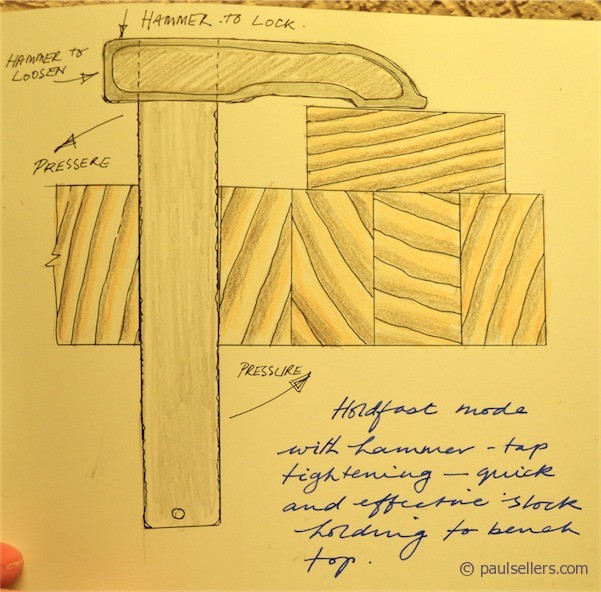 HAMMER TO LOCK.
HAMMER TO
LOOSEN
PRESSERE
PRESSURE
Holdfast mode
with hammer-tap
tightening — quick
and effective stock
holding to bench
top.
© paulsellers.com